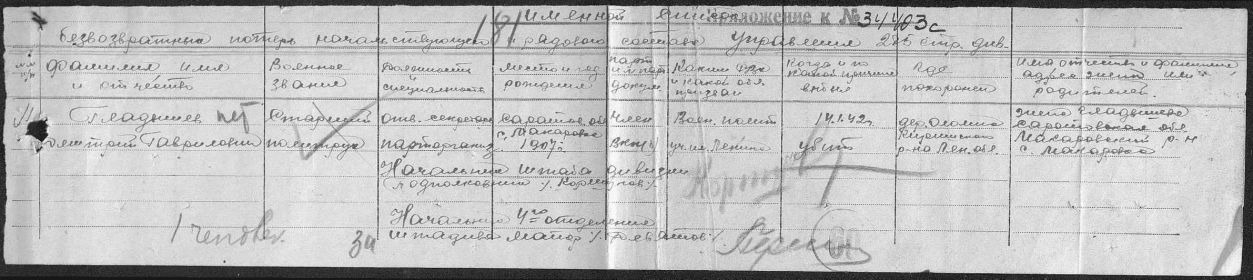 181 именной список Приложение к № 34403с
безвозвратных потерь начальствующего и рядового состава управления 285 стр. див.
№№ п/п
Фамилия имя и отчество
Военное звание
Должность специальность
Место и год рождения
парт и м парт докум
Каким РВК и какой обл. призван
Когда и по какой причине выбыл
Где похоронен
Имя отчество и фамилия адрес жены или родителей
Гладышев Дмитрий Гаврилович
нет
Старший политрук
отв. секретарь парторганиз.
Саратов. обл. с. Макарово 1907г.
Член ВКП(б)
Воен. полит уч. им. Ленина
14.1.42г. убит
дер. Осломка Киришского р-на Лен. обл.
жена Гладышева
Саратовская обл.
Макаровский р-н
с. Макарово
Начальник штаба дивизии
(подполковник /. Коршунов /.
Начальник 4го отделения
штадива майор /.
1 человек
3и
60